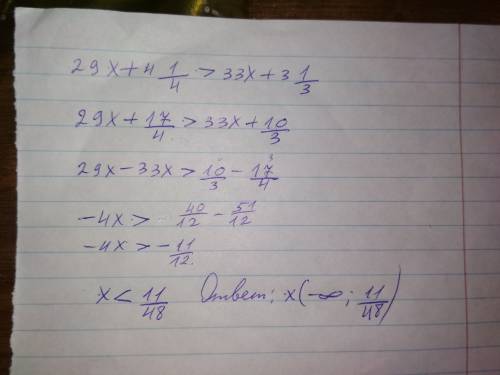 29x + 4 1/4 > 33x + 3 1/3
29x + 17/4 > 33x + 10/3
29x - 33x > 10/3 - 17/4
-4x > 40/12 - 51/12
-4x > -11/12
x < 11/48 Ответ: x(-∞; 11/48)